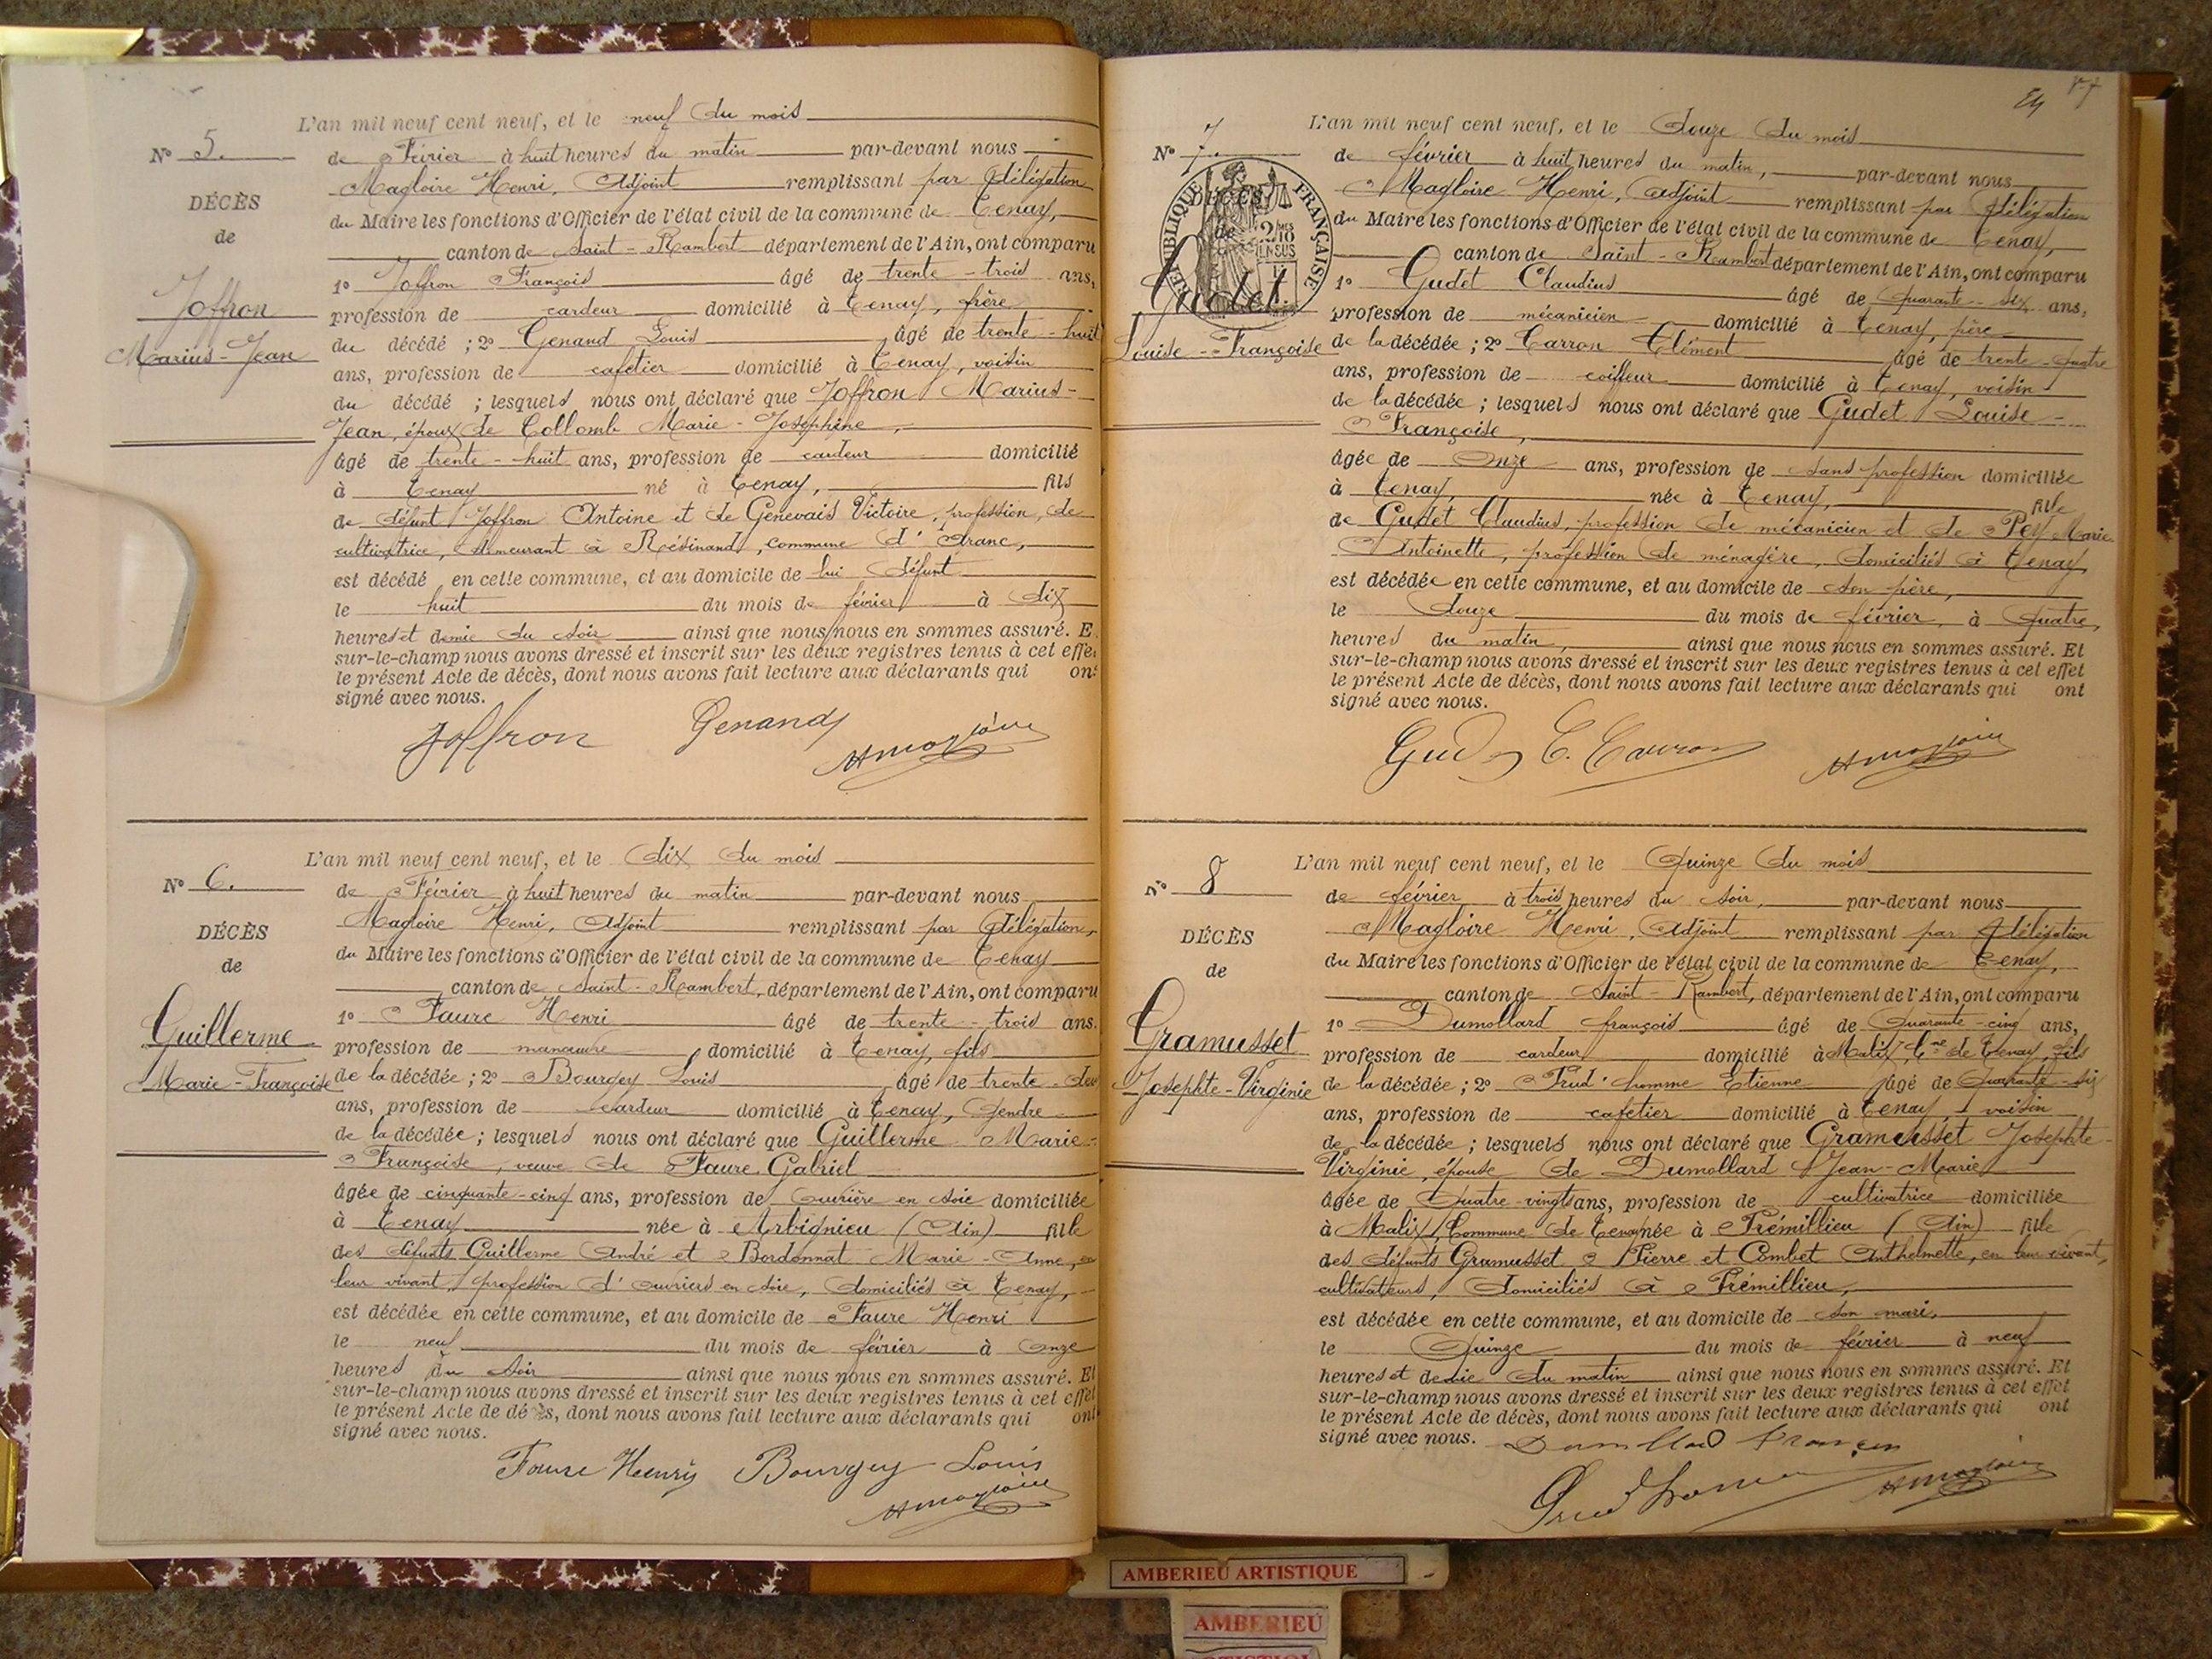 L'an mil neuf cent neuf, et le neuf du mois
N° 5.
de Février à huit heures du matin par-devant nous
Magloire Henri, Adjoint remplissant par délégation
DÉCÈS
du Maire les fonctions d'Officier de l'état civil de la commune de Tenay,
de
canton de Saint-Rambert département de l'Ain, ont comparu
Joffron
1° Joffron François âgé de trente-trois ans,
profession de cardeur domicilié à Tenay, frère
Marius-Jean
du décédé ; 2° Genand Louis âgé de trente-huit
ans, profession de cafetier domicilié à Tenay, voisin
du décédé ; lesquels nous ont déclaré que Joffron Marius-
Jean, époux de Collomb Marie-Joséphine,
âgé de trente-huit ans, profession de cardeur domicilié
à Tenay né à Tenay, fils
de défunt Joffron Antoine et de Genevais Victoire, profession de
cultivatrice, demeurant à Résinand, commune d'Aranc,
est décédé en cette commune, et au domicile de lui défunt
le huit du mois de février à dix
heures et demie du soir ainsi que nous nous en sommes assuré. E
sur-le-champ nous avons dressé et inscrit sur les deux registres tenus à cet effet
le présent Acte de décès, dont nous avons fait lecture aux déclarants qui ont
signé avec nous.
Joffron Genand HMagloire
L'an mil neuf cent neuf, et le dix du mois
N° 6.
de Février à huit heures du matin par-devant nous
Magloire Henri, Adjoint remplissant par délégation,
DÉCÈS
du Maire les fonctions d'Officier de l'état civil de la commune de Tenay
de
canton de Saint-Rambert, département de l'Ain, ont comparu
Guillerme
1° Faure Henri âgé de trente-trois ans.
profession de manœuvre domicilié à Tenay, fils
Marie-Françoise
de la décédée ; 2° Bourgey Louis âgé de trente-deux
ans, profession de cardeur domicilié à Tenay, gendre
de la décédée ; lesquels nous ont déclaré que Guillerme Marie-
Françoise, veuve de Faure Gabriel
âgée de cinquante-cinq ans, profession de ouvrière en soie domiciliée
à Tenay née à Arbignieu (Ain) fille
des défunts Guillerme André et Bordonnat Marie-Anne, en
leur vivant, profession d'ouvriers en soie, domiciliés à Tenay,
est décédée en cette commune, et au domicile de Faure Henri
le neuf du mois de février à onze
heures du soir ainsi que nous nous en sommes assuré. Et
sur-le-champ nous avons dressé et inscrit sur les deux registres tenus à cet effet
le présent Acte de décès, dont nous avons fait lecture aux déclarants qui ont
signé avec nous.
Faure Henry Bourgey Louis
HMagloire
24
L'an mil neuf cent neuf, et le douze du mois
N° 7.
de février à huit heures du matin, par-devant nous
Magloire Henri, Adjoint remplissant par délégation
DÉCÈS
RÉPUBLIQUE FRANÇAISE
2/10 EN SUS
du Maire les fonctions d'Officier de l'état civil de la commune de Tenay,
de
canton de Saint-Rambert département de l'Ain, ont comparu
Gudet
1° Gudet Claudius âgé de quarante-six ans,
profession de mécanicien domicilié à Tenay, père
Louise-Françoise
de la décédée ; 2° Carron Clément âgé de trente-quatre
ans, profession de coiffeur domicilié à Tenay, voisin
de la décédée ; lesquels nous ont déclaré que Gudet Louise-
Françoise,
âgée de onze ans, profession de sans profession domiciliée
à Tenay, née à Tenay, fille
de Gudet Claudius, profession de mécanicien et de Pey Marie
Antoinette, profession de ménagère, domiciliés à Tenay,
est décédée en cette commune, et au domicile de son père,
le douze du mois de février, à quatre,
heures du matin, ainsi que nous nous en sommes assuré. Et
sur-le-champ nous avons dressé et inscrit sur les deux registres tenus à cet effet
le présent Acte de décès, dont nous avons fait lecture aux déclarants qui ont
signé avec nous.
Gudet C. Carron HMagloire
L'an mil neuf cent neuf, et le quinze du mois
N° 8
de février à trois heures du soir, par-devant nous
Magloire Henri, Adjoint remplissant par délégation
DÉCÈS
du Maire les fonctions d'Officier de l'état civil de la commune de Tenay,
de
canton de Saint-Rambert, département de l'Ain, ont comparu
Gramusset
1° Dumollard françois âgé de quarante-cinq ans,
profession de cardeur domicilié à Malix, Cne de Tenay, fils
Josephte-Virginie
de la décédée ; 2° Prud'homme Etienne âgé de quarante-six
ans, profession de cafetier domicilié à Tenay, voisin
de la décédée ; lesquels nous ont déclaré que Gramusset Josephte-
Virginie, épouse de Dumollard Jean-Marie
âgée de quatre-vingts ans, profession de cultivatrice domiciliée
à Malix, Commune de Tenay née à Prémillieu (Ain) fille
des défunts Gramusset Pierre et Combet Anthelmette, en leur vivant,
cultivateurs, domiciliés à Prémillieu,
est décédée en cette commune, et au domicile de son mari,
le quinze du mois de février à neuf
heures et demie du matin ainsi que nous nous en sommes assuré. Et
sur-le-champ nous avons dressé et inscrit sur les deux registres tenus à cet effet
le présent Acte de décès, dont nous avons fait lecture aux déclarants qui ont
signé avec nous. Dumollard François
Prudhomme HMagloire
AMBERIEU ARTISTIQUE
AMBERIEU